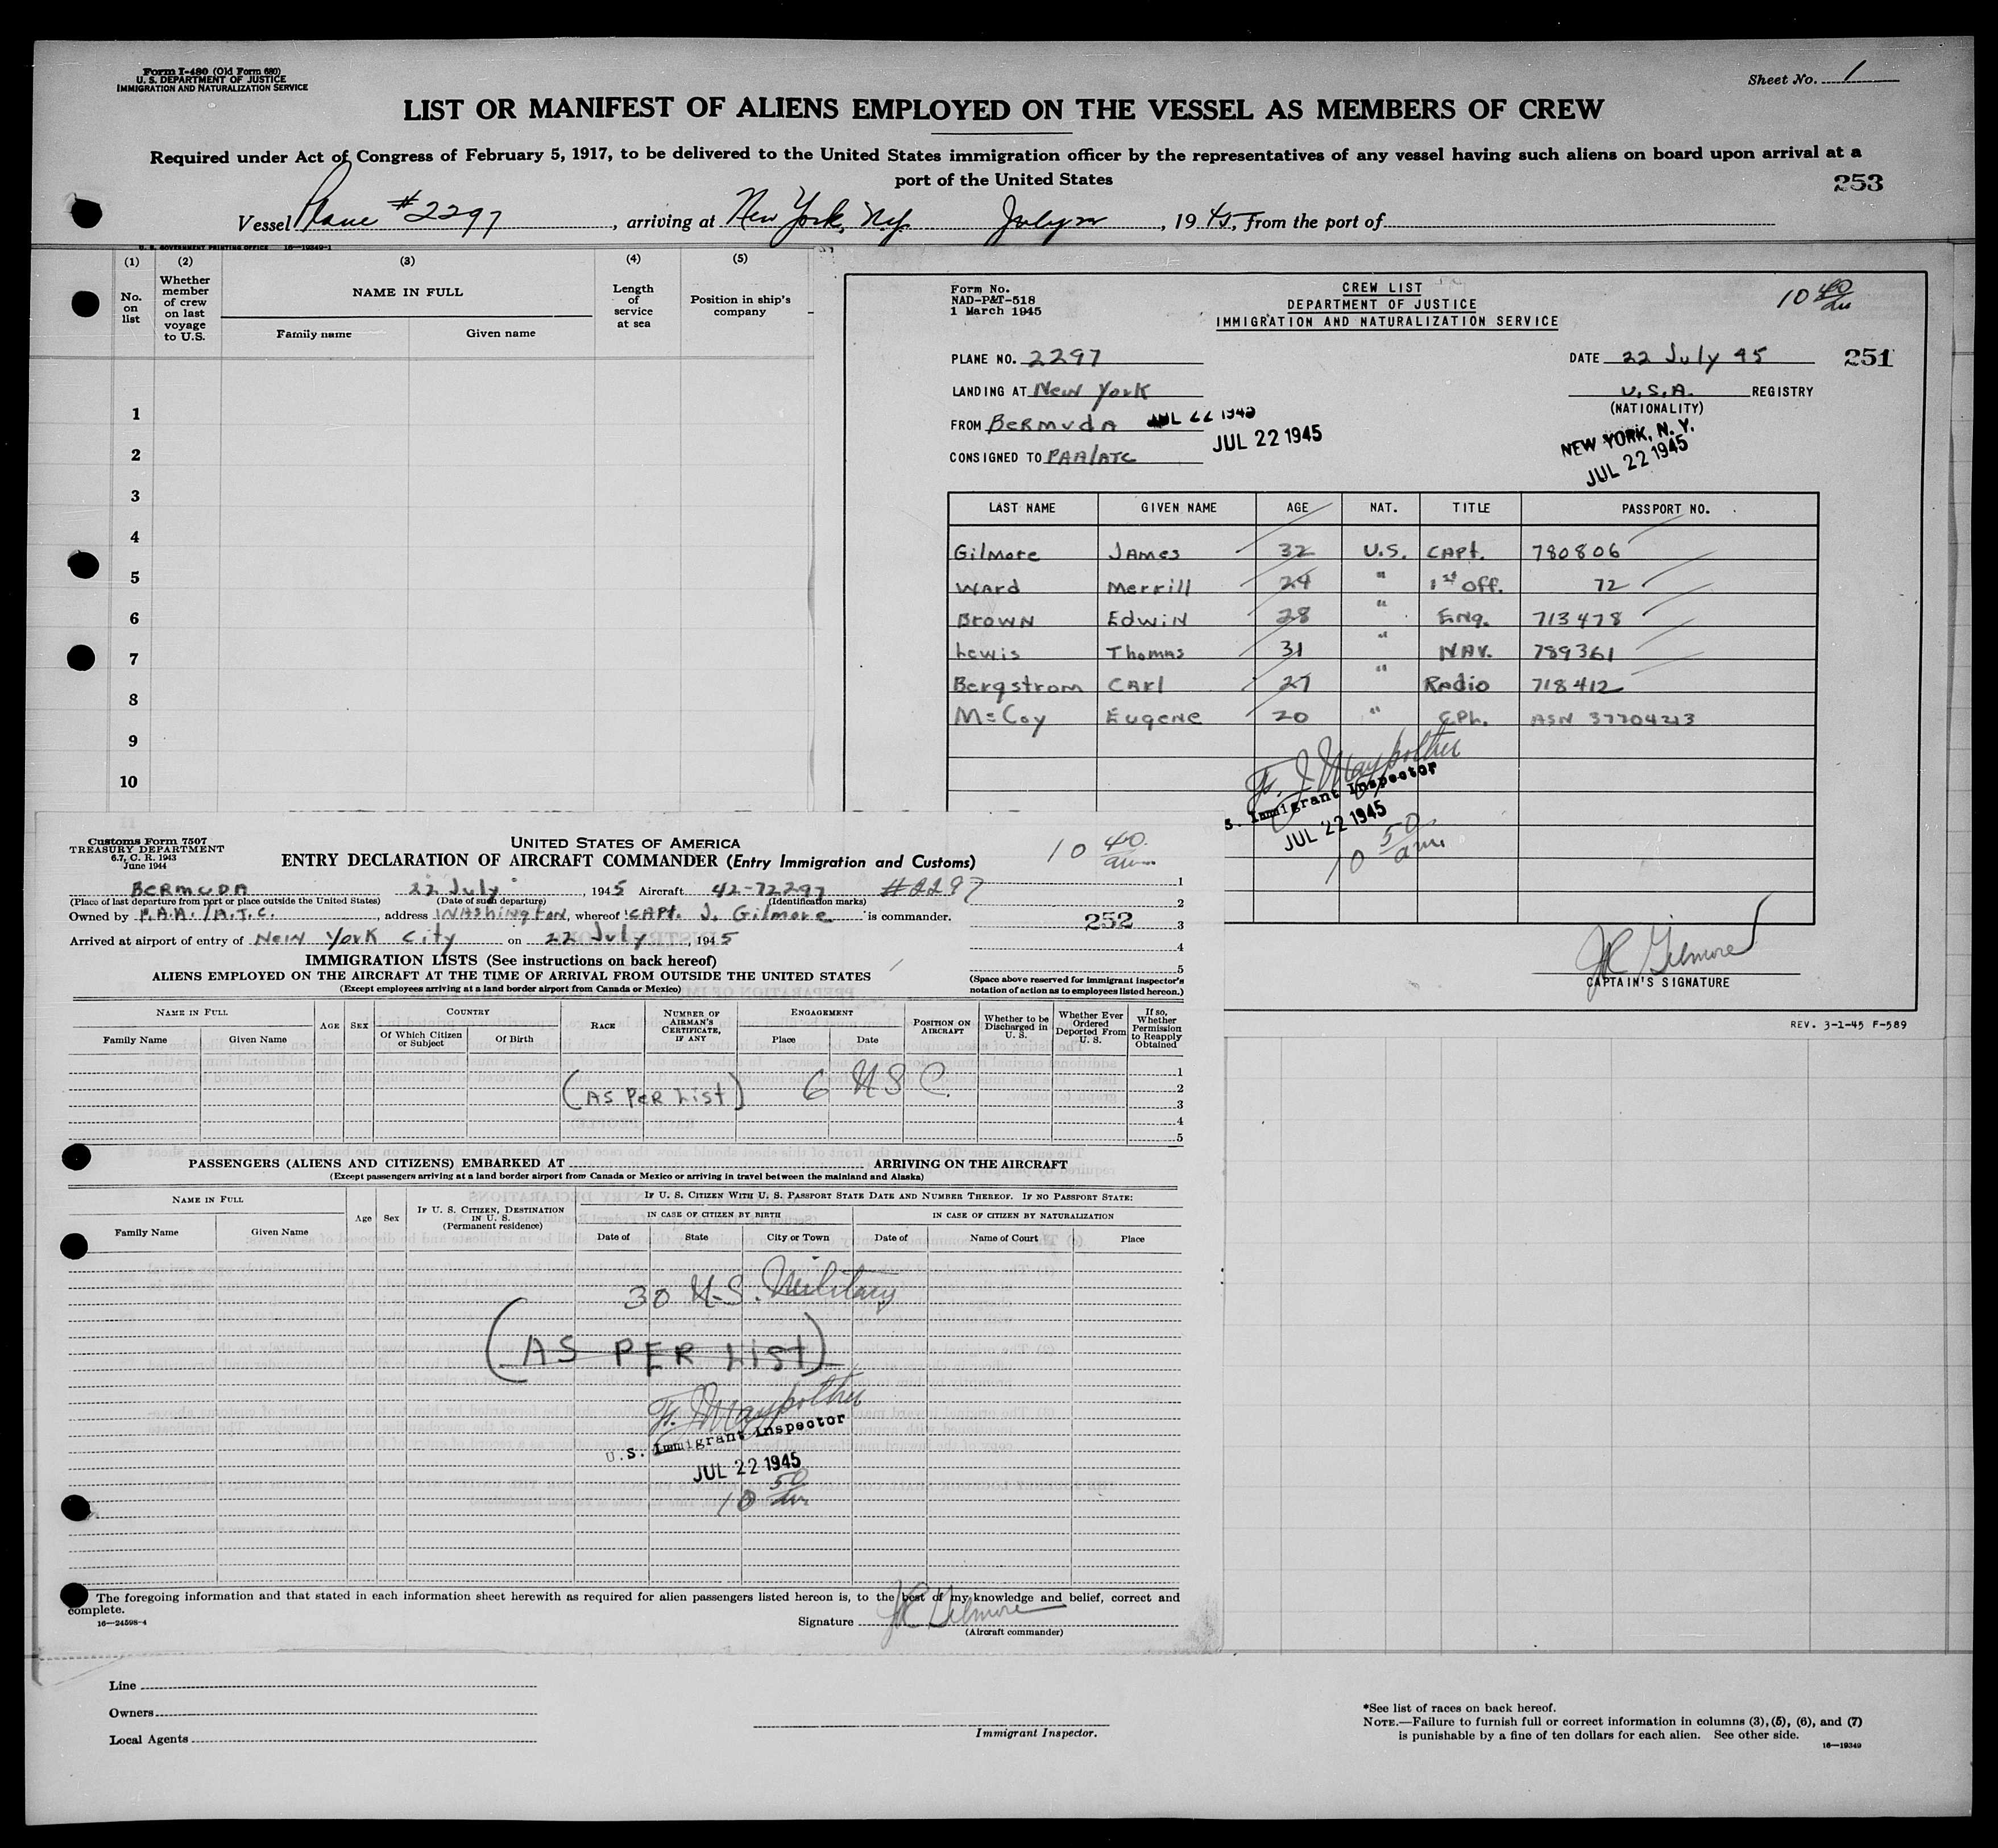 Form I-480 (Old Form 680)
U. S. DEPARTMENT OF JUSTICE
IMMIGRATION AND NATURALIZATION SERVICE
Sheet No. 1
LIST OR MANIFEST OF ALIENS EMPLOYED ON THE VESSEL AS MEMBERS OF CREW
Required under Act of Congress of February 5, 1917, to be delivered to the United States immigration officer by the representatives of any vessel having such aliens on board upon arrival at a
port of the United States
253
Vessel Plane #2297, arriving at New York, N.Y. July 22, 1945, from the port of
U. S. GOVERNMENT PRINTING OFFICE 16—19349-1
(1) (2) (3) (4) (5)
No. on list
Whether member of crew on last voyage to U.S.
NAME IN FULL
Family name Given name
Length of service at sea
Position in ship's company
1
2
3
4
5
6
7
8
9
10
Form No.
NAD-P&T-518
1 March 1945
CREW LIST
DEPARTMENT OF JUSTICE
IMMIGRATION AND NATURALIZATION SERVICE
10 40 am
PLANE NO. 2297
DATE 22 July 45
251
LANDING AT New York
U.S.A. REGISTRY
(NATIONALITY)
FROM Bermuda JUL 22 1945
JUL 22 1945
NEW YORK, N. Y.
JUL 22 1945
CONSIGNED TO PAA/ATC
LAST NAME GIVEN NAME AGE NAT. TITLE PASSPORT NO.
Gilmore James 32 U.S. Capt. 780806
Ward Merrill 24 " 1st Off. 72
Brown Edwin 28 " Eng. 713478
Lewis Thomas 31 " Nav. 789361
Bergstrom Carl 27 " Radio 718412
McCoy Eugene 20 " ASN 37704213
S. Immigrant Inspector
JUL 22 1945
10 50 am
JR Gilmore
CAPTAIN'S SIGNATURE
REV. 3-1-45 F-589
Customs Form 7507
TREASURY DEPARTMENT
6.7, C. R. 1943
June 1944
UNITED STATES OF AMERICA
ENTRY DECLARATION OF AIRCRAFT COMMANDER (Entry Immigration and Customs)
10 40 am
Bermuda 22 July, 1945 Aircraft 42-72297 #2297
(Place of last departure from port or place outside the United States) (Date of such departure) (Identification marks)
Owned by P.A.A./A.T.C., address Washington, whereof Capt. J. Gilmore is commander.
Arrived at airport of entry of New York City on 22 July, 1945
1
2
252 3
4
5
IMMIGRATION LISTS (See instructions on back hereof)
ALIENS EMPLOYED ON THE AIRCRAFT AT THE TIME OF ARRIVAL FROM OUTSIDE THE UNITED STATES
(Except employees arriving at a land border airport from Canada or Mexico)
(Space above reserved for immigrant inspector's notation of action as to employees listed hereon.)
NAME IN FULL
Family Name Given Name
AGE SEX
COUNTRY
Of Which Citizen or Subject Of Birth
RACE
NUMBER OF AIRMAN'S CERTIFICATE, IF ANY
ENGAGEMENT
Place Date
POSITION ON AIRCRAFT
Whether to be Discharged in U. S.
Whether Ever Ordered Deported From U. S.
If so, Whether Permission to Reapply Obtained
1
2
3
4
5
(As Per List) 6 USC
PASSENGERS (ALIENS AND CITIZENS) EMBARKED AT ARRIVING ON THE AIRCRAFT
(Except passengers arriving at a land border airport from Canada or Mexico or arriving in travel between the mainland and Alaska)
NAME IN FULL
Family Name Given Name
Age Sex
IF U. S. CITIZEN, DESTINATION IN U. S. (Permanent residence)
IF U. S. CITIZEN WITH U. S. PASSPORT STATE DATE AND NUMBER THEREOF. IF NO PASSPORT STATE:
IN CASE OF CITIZEN BY BIRTH IN CASE OF CITIZEN BY NATURALIZATION
Date of State City or Town Date of Name of Court Place
30 U.S. Military
(AS PER LIST)
U.S. Immigrant Inspector
JUL 22 1945
10 50 am
The foregoing information and that stated in each information sheet herewith as required for alien passengers listed hereon is, to the best of my knowledge and belief, correct and
complete.
16—24598-4
Signature JR Gilmore
(Aircraft commander)
Line
Owners
Local Agents
Immigrant Inspector.
*See list of races on back hereof.
NOTE.—Failure to furnish full or correct information in columns (3), (5), (6), and (7)
is punishable by a fine of ten dollars for each alien. See other side.
16—19349